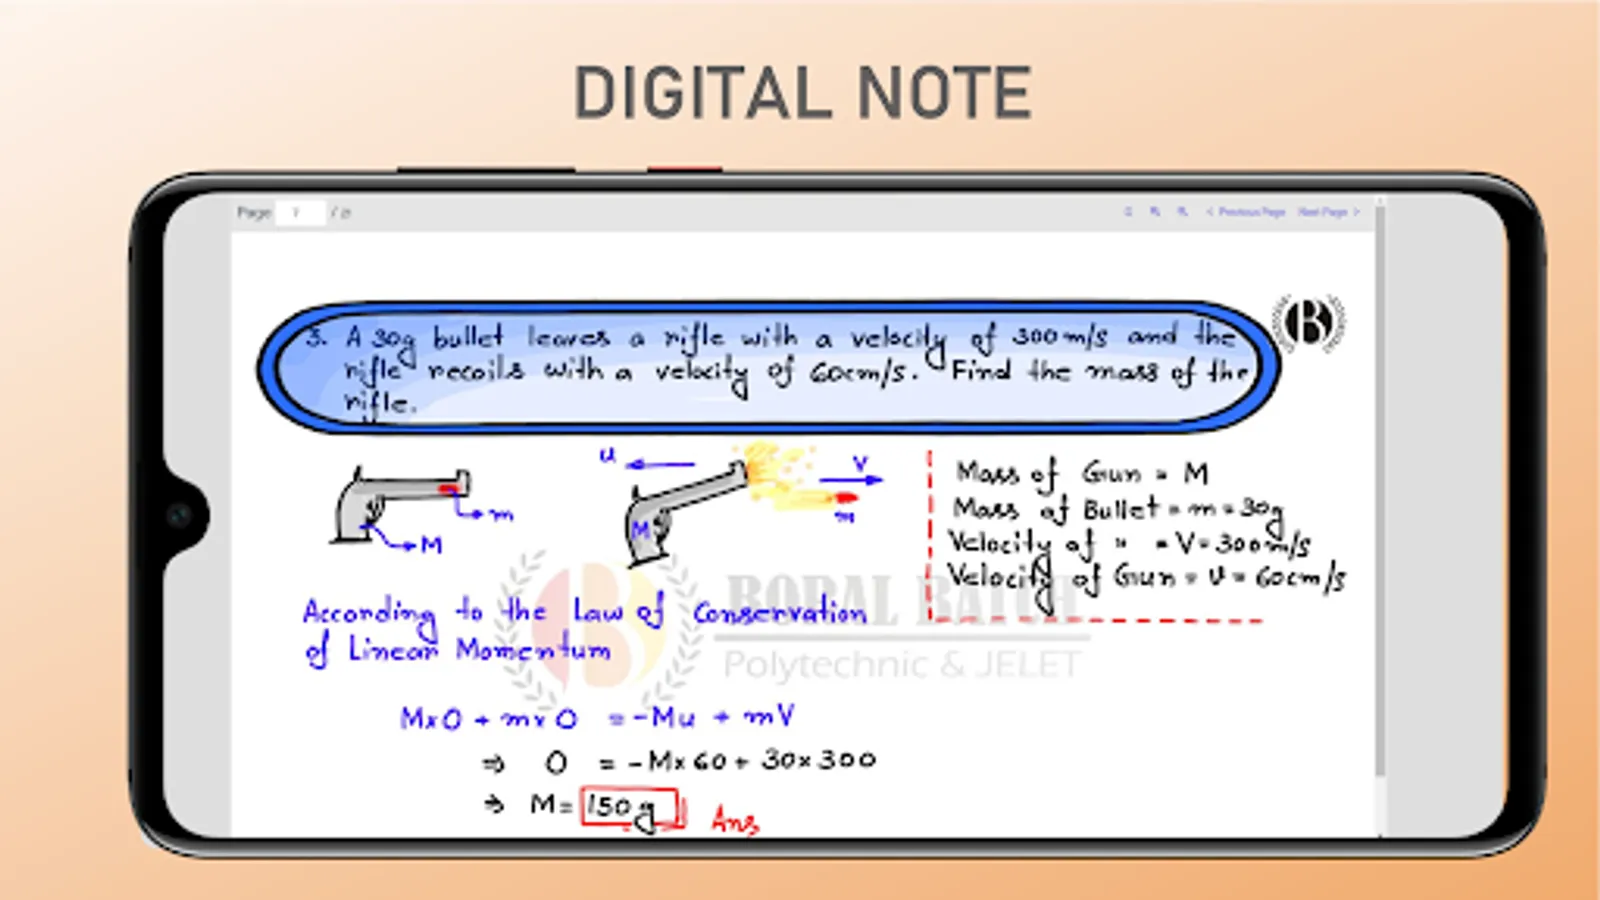 DIGITAL NOTE
Page 7 / 21
< Previous Page Next Page >
3. A 30g bullet leaves a rifle with a velocity of 300m/s and the
rifle recoils with a velocity of 60cm/s. Find the mass of the
rifle.
B
u
V
m
M
M
m
Mass of Gun = M
Mass of Bullet = m = 30g
Velocity of " = V = 300m/s
Velocity of Gun = u = 60cm/s
BORAL BATCH
Polytechnic & JELET
According to the Law of Conservation
of Linear Momentum
Mx0 + mx0 = -Mu + mV
⇒ 0 = -Mx60 + 30x300
⇒ M = 150g Ans